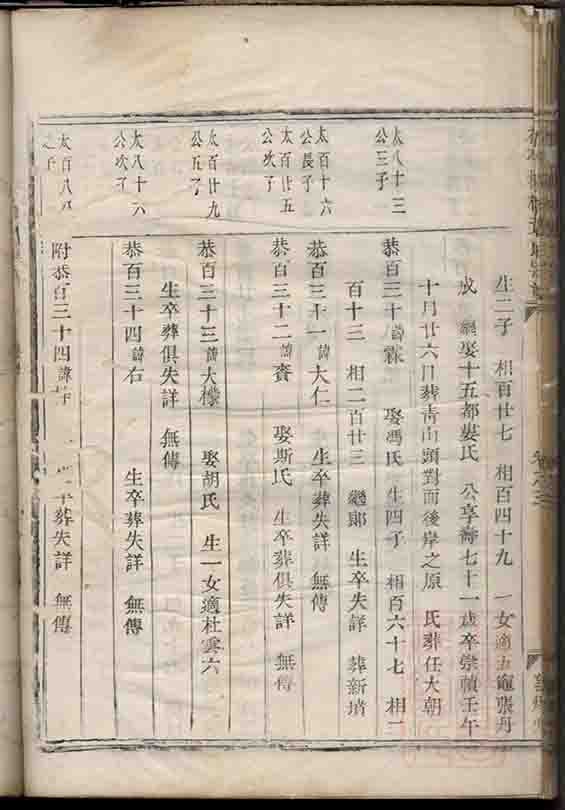 生二子 相百廿七 相百四十九 一女適五竈張丹
成 繼娶十五都婁氏 公享壽七十一歲卒崇禎壬午
十月廿六日葬靑山頭對面後岸之原 氏葬任大朝
太八十三
公三子
恭百三十諱霖 娶馮氏 生四子 相百六十七 相二
百十三 相二百廿三 繼郞 生卒失詳 葬新堉
太百十六
公長子
恭百三十一諱大仁 生卒葬失詳 無傳
太百廿五
公次子
恭百三十二諱賚 娶斯氏 生卒葬俱失詳 無傳
太百廿九
公五子
恭百三十三諱大檬 娶胡氏 生一女適杜雲六
生卒葬俱失詳 無傳
太八十六
公次子
恭百三十四諱右 生卒葬失詳 無傳
太百八
之子
附恭百三十四諱 葬失詳 無傳